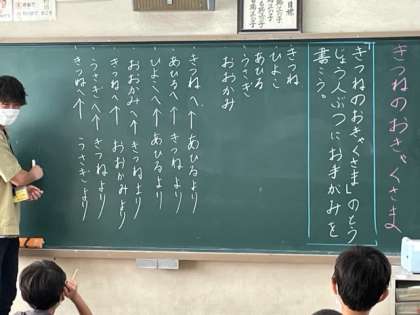 きつねのおきゃくさま
「きつねのおきゃくさま」のとう
じょう人ぶつにお手がみを
書こう。
・きつね
・ひよこ
・あひる
・うさぎ
・おおかみ
きつねへ、↑あひるより
あひるへ↑きつねより
ひよこへ↑あひるより
おおかみへ↑きつねより
きつねへ↑おおかみより
うさぎへ↑きつねより
きつねへ↑うさぎより